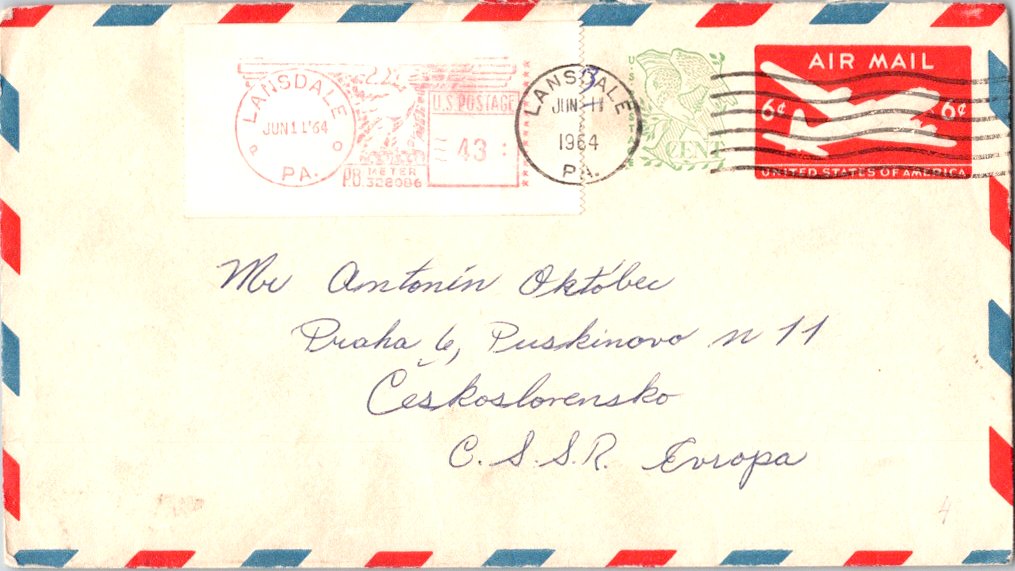 LANSDALE
JUN 11 '64
PA.
U.S. POSTAGE
43
PB METER
328086
LANSDALE
JUN 11
1964
PA.
CENT
AIR MAIL
6¢ 6¢
UNITED STATES OF AMERICA
Mr Antonín Októbec
Praha 6, Puskinovo n 11
Československo
C.S.S.R. Evropa
4